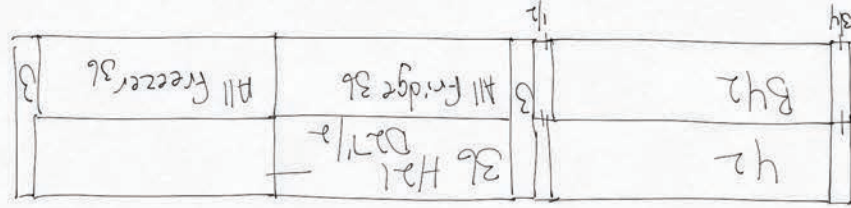 42
36 H21
D27 1/2
B42
3
All Fridge 36
All Freezer 36
3
3/4
1/2